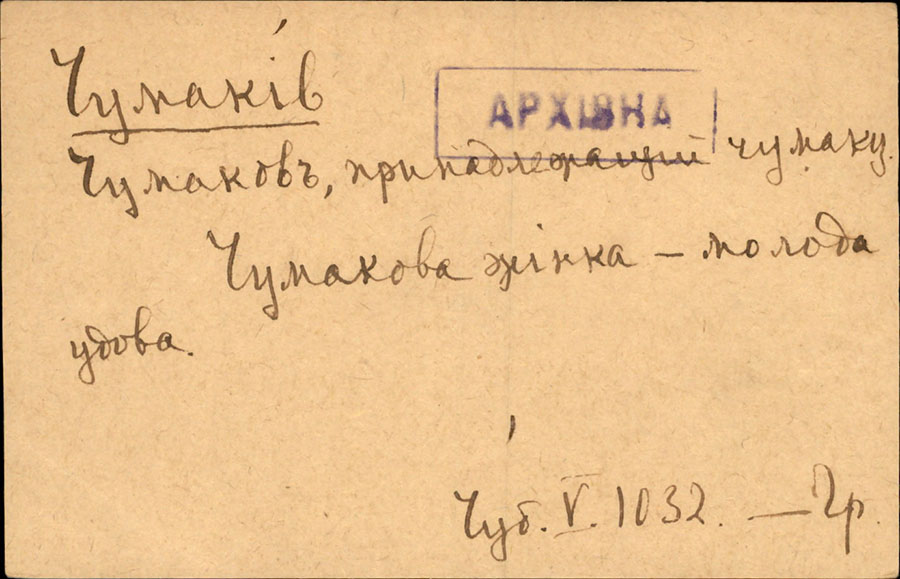 Чумакі́в
АРХІВНА
Чумаковъ, принадлежащий чумаку.
Чумакова жінка – молода
удова.
Чуб. V. 1032. — Гр.